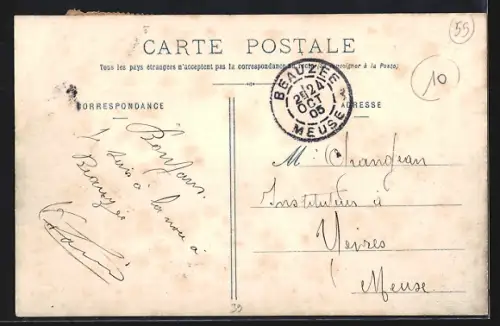 55
CARTE POSTALE
Tous les pays étrangers n'acceptent pas la correspondance au recto (se renseigner à la Poste)
10
CORRESPONDANCE
ADRESSE
BEAUZÉE
24
OCT
05
MEUSE
Bonjour.
Je suis à la noce à
Beauzée
M. Changean
Instituteur à
Meuse